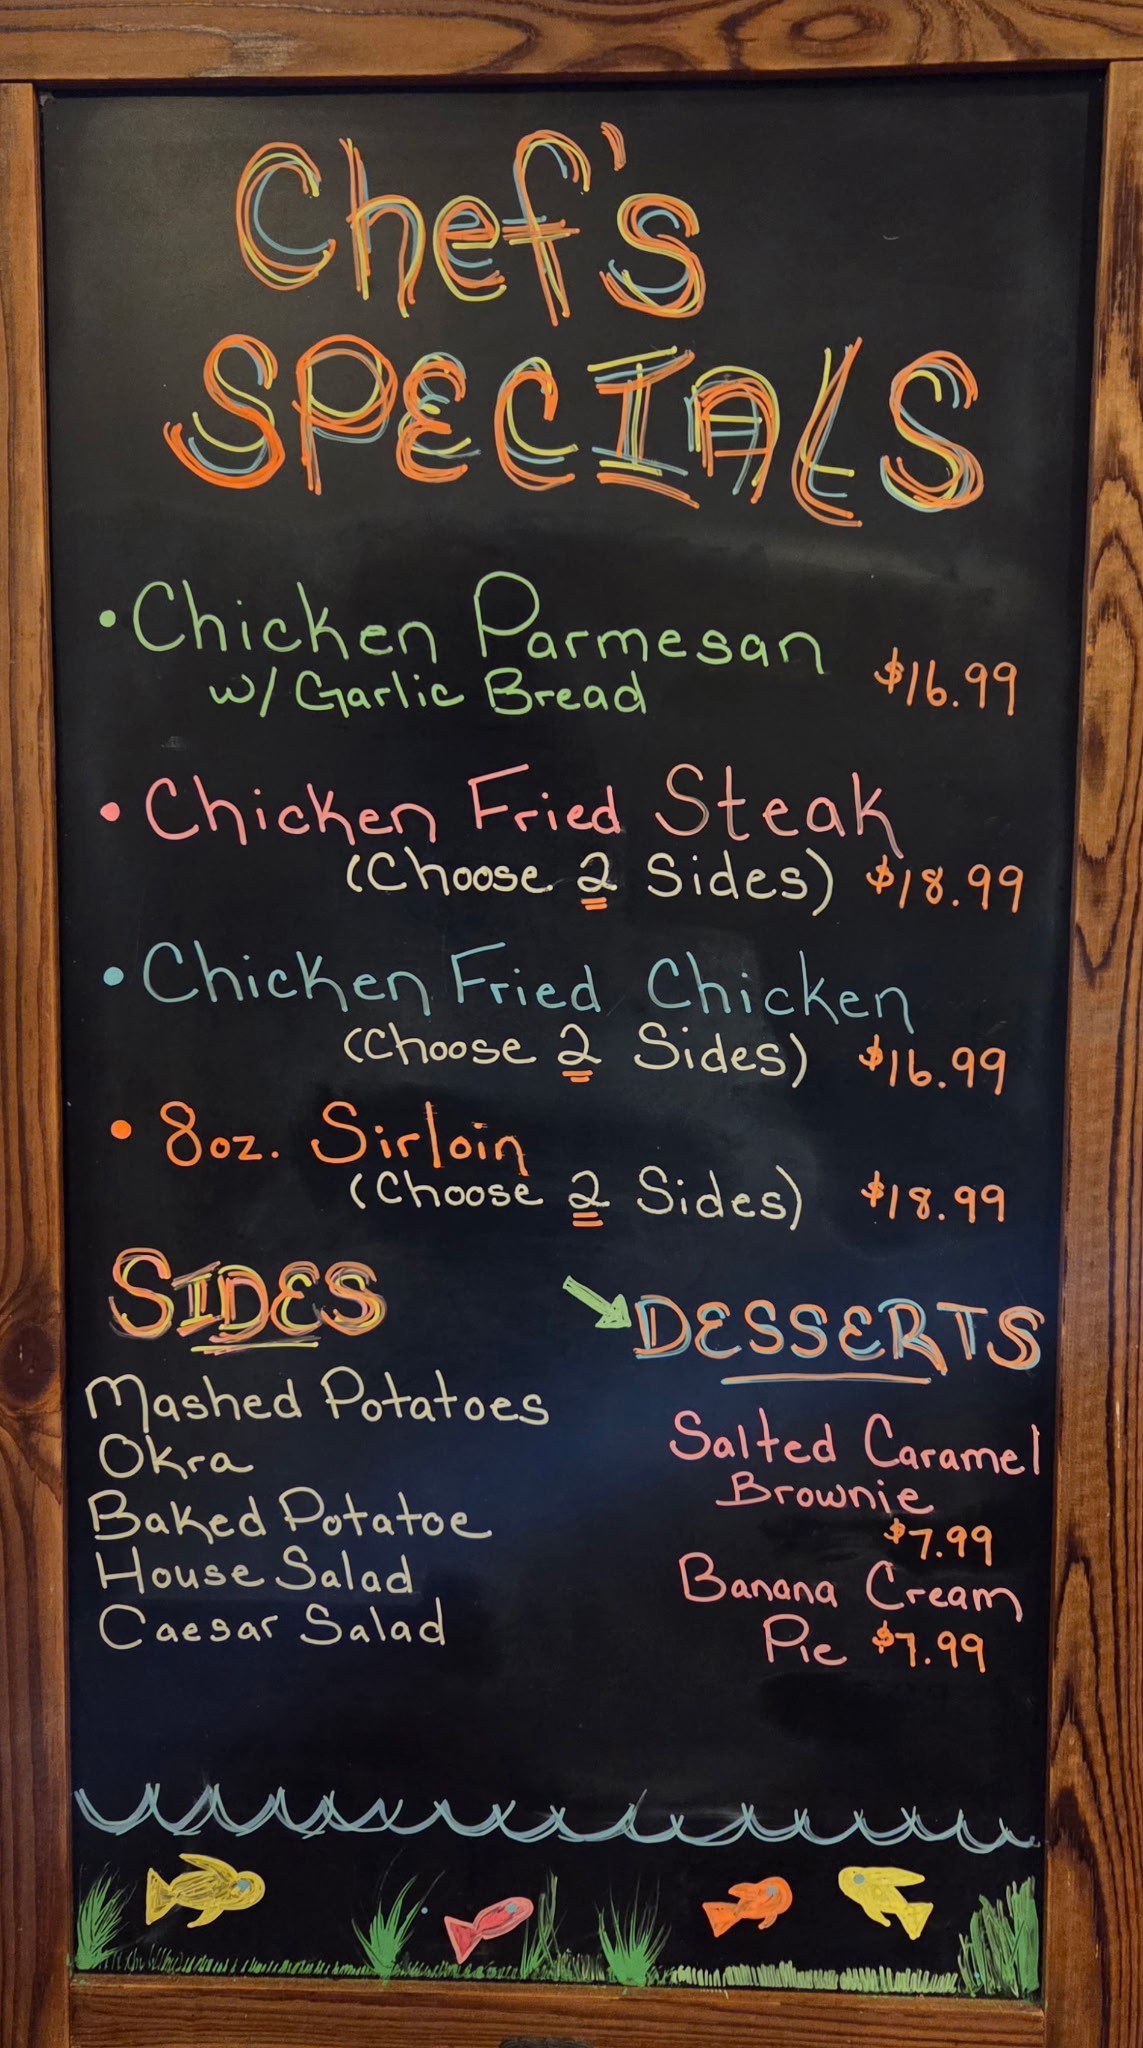 Chef's
SPECIALS
• Chicken Parmesan
w/ Garlic Bread $16.99
• Chicken Fried Steak
(Choose 2 Sides) $18.99
• Chicken Fried Chicken
(Choose 2 Sides) $16.99
• 8oz. Sirloin
(Choose 2 Sides) $18.99
SIDES
Mashed Potatoes
Okra
Baked Potatoe
House Salad
Caesar Salad
DESSERTS
Salted Caramel
Brownie
$7.99
Banana Cream
Pie $7.99